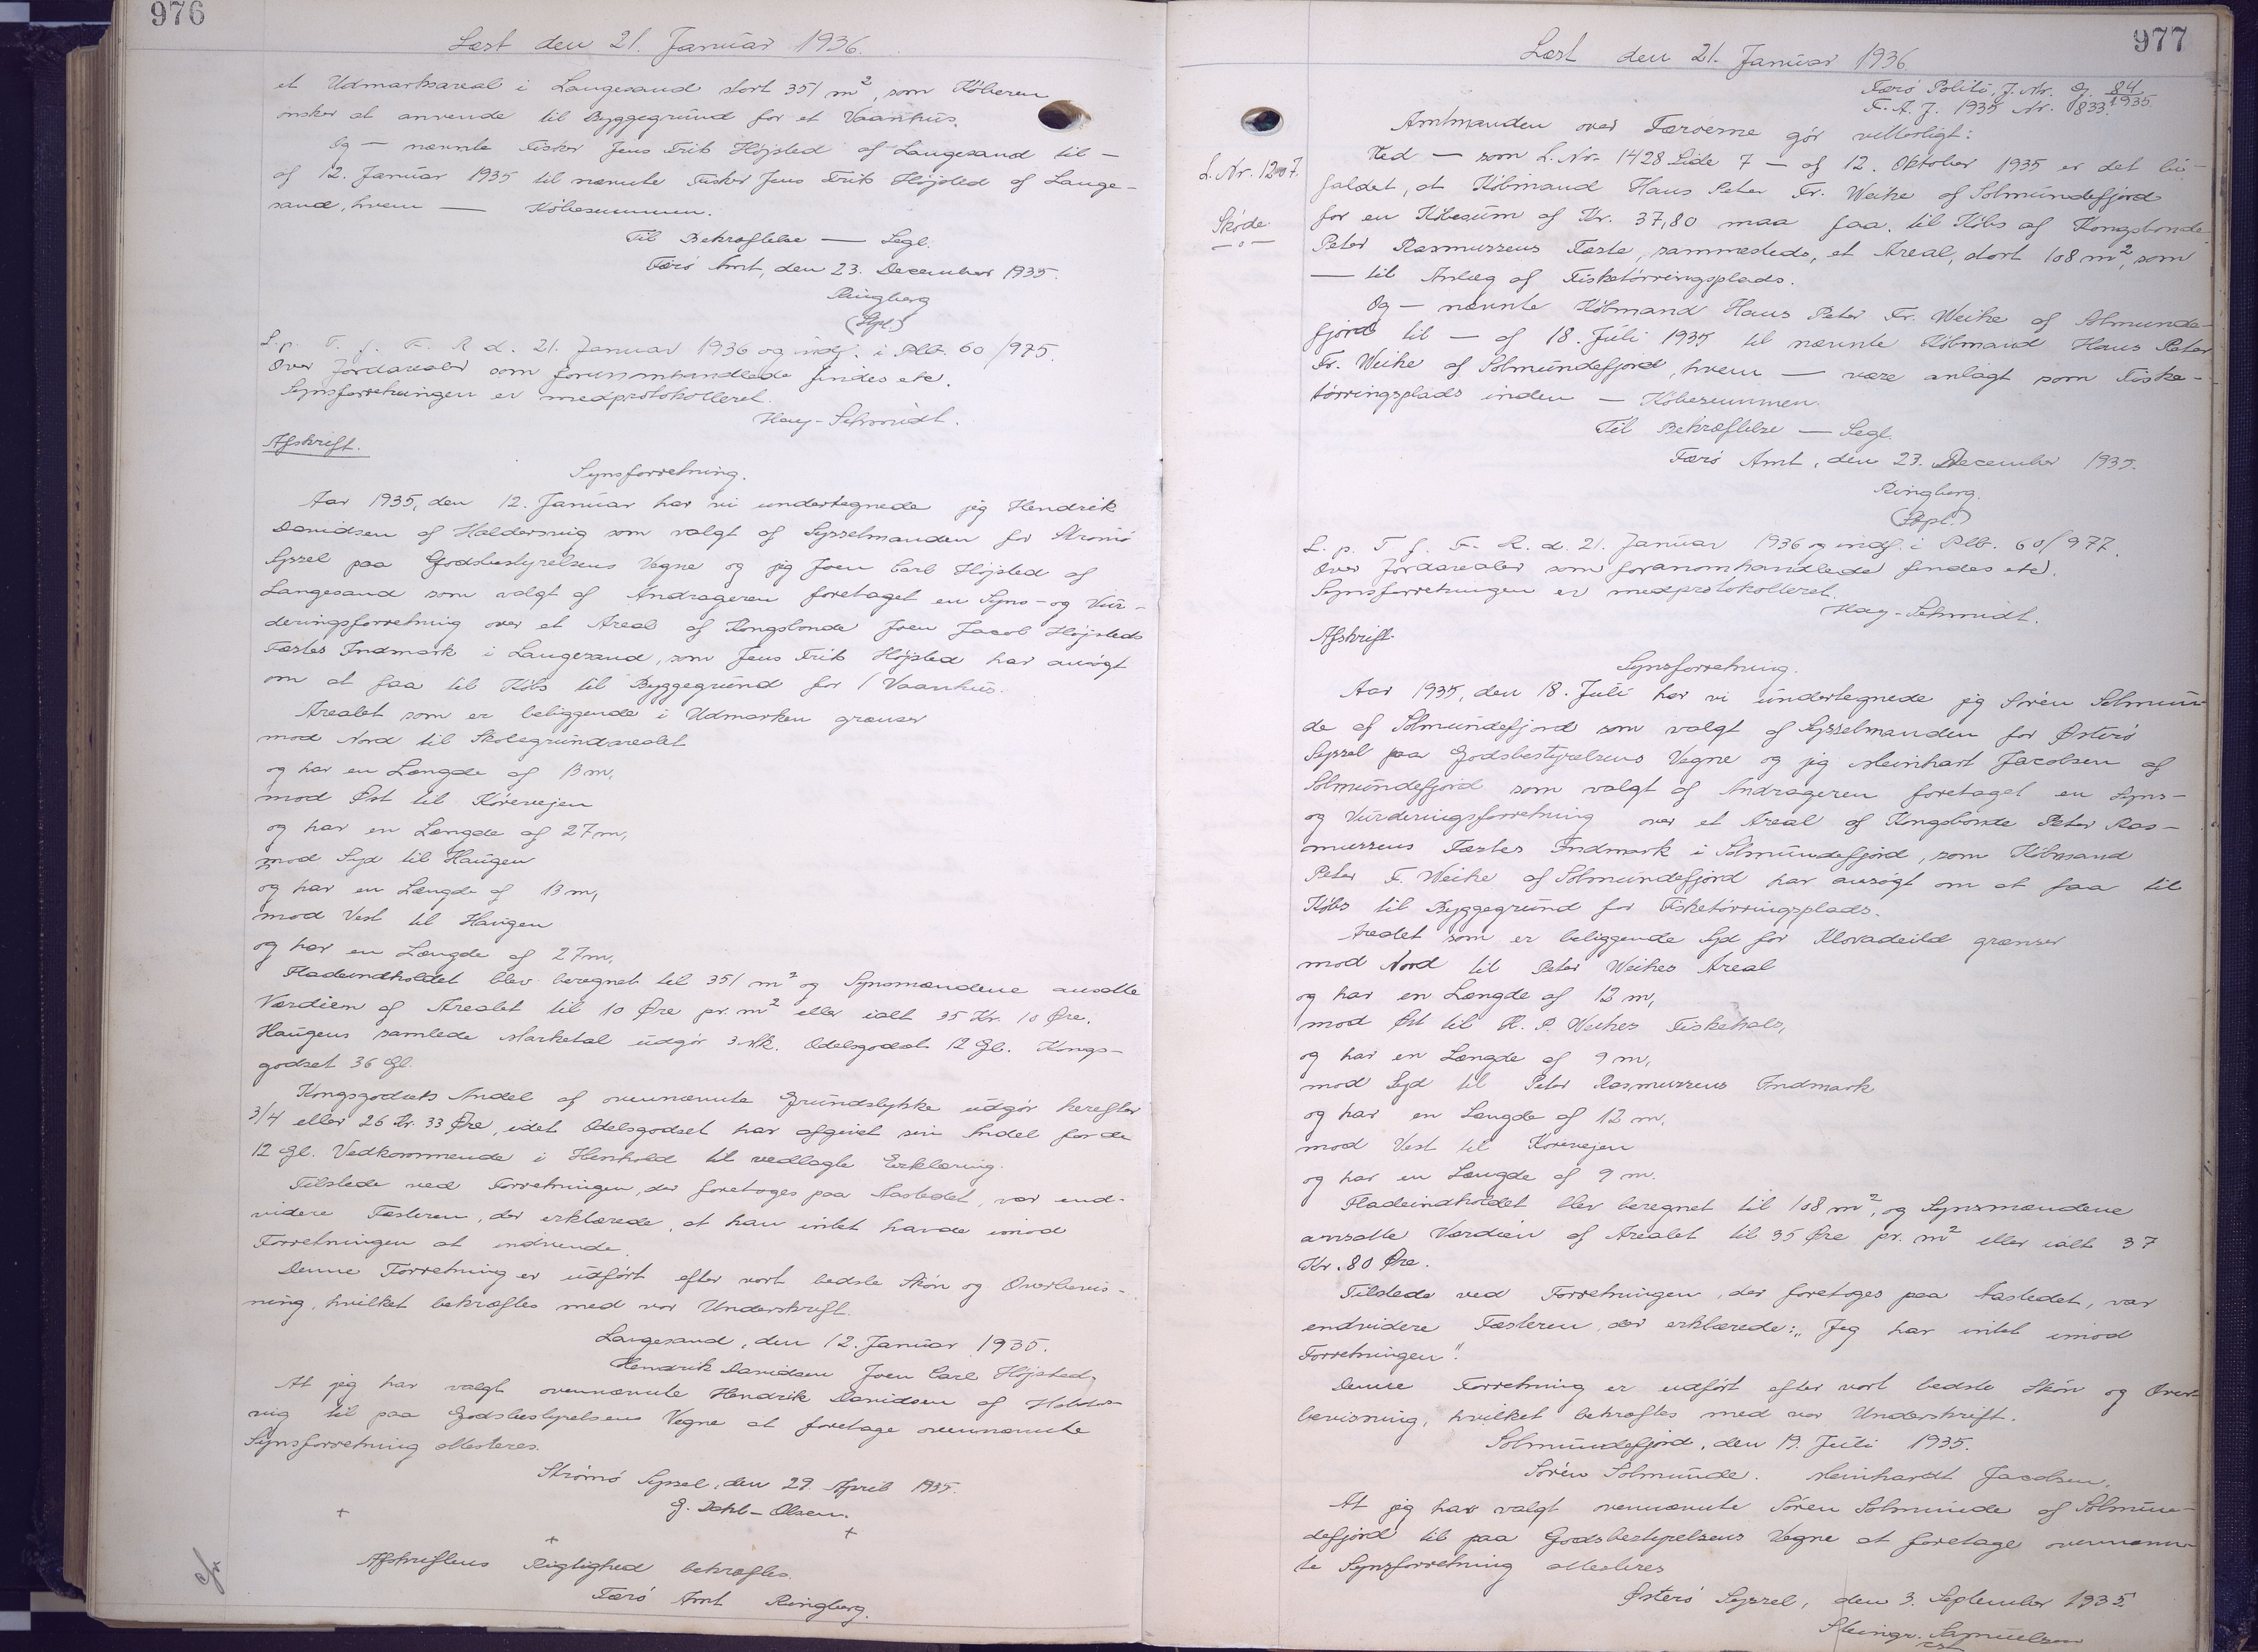 976
Læst den 21. Januar 1936.
et Udmarksareal i Langesand stort 351 m², som Köberen
önsker at anvende til Byggegrund for et Vaanhus.
Og — nævnte Fisker Jens Frits Höjsted af Langesand til —
af 12. Januar 1935 til nævnte Fisker Jens Frits Höjsted af Lange-
sand, hvem — Köbesummen.
Til Bekræftelse — Segl.
Færö Amt, den 23. December 1935.
Ringberg
(Stpl.)
L. p. T. f. F. R d. 21. Januar 1936 og indf. i Pltr. 60/975.
Over Jordarealer som foranomhandlede findes etc.
Synsforretningen er medprotokolleret.
Hay-Schmidt.
Afskrift.
Synsforretning.
Aar 1935, den 12. Januar har vi undertegnede jeg Hendrik
Davidsen af Haldersvig som valgt af Sysselmanden for Strömö
Syssel paa Godsbestyrelsens Vegne og jeg Joen Carl Höjsted af
Langesand som valgt af Andrageren foretaget en Syns- og Vur-
deringsforretning over et Areal af Kongsbonde Joen Jacob Höjsteds
Fæstes Indmark i Langesand, som Jens Frits Höjsted har ansögt
om at faa til Köbs til Byggegrund for 1 Vaanhus.
Arealet som er beliggende i Udmarken grænser
mod Nord til Skolegrundarealet
og har en Længde af 13 m,
mod Øst til Körevejen
og har en Længde af 27 m,
mod Syd til Haugen
og har en Længde af 13 m,
mod Vest til Haugen
og har en Længde af 27 m.
Fladeindholdet blev beregnet til 351 m² og Synsmændene ansatte
Værdien af Arealet til 10 Øre pr. m² eller ialt 35 Kr. 10 Øre.
Haugens samlede Marketal udgör 3 Mk. Odelsgodset 12 Gl. Kongs-
godset 36 Gl.
Kongsgodsets Andel af ovennævnte Grundstykke udgör herefter
3/4 eller 26 Kr. 33 Øre, idet Odelsgodset har afgivet sin Andel for de
12 Gl. Vedkommende i Henhold til vedlagte Erklæring.
Tilstede ved Forretningen, der foretoges paa Aastedet, var end-
videre Fæsteren, der erklærede, at han intet havde imod
Forretningen at indvende.
Denne Forretning er udfört efter vort bedste Skön og Overbevis-
ning, hvilket bekræftes med vor Underskrift.
Langesand, den 12. Januar 1935.
Hendrik Davidsen Joen Carl Höjsted,
At jeg har valgt ovennævnte Hendrik Davidsen af Halders-
vig til paa Godsbestyrelsens Vegne at foretage ovennævnte
Synsforretning attesteres.
Strömö Syssel, den 29. April 1935.
G. Dahl-Olsen.
Afskriftens Rigtighed bekræftes.
Færö Amt Ringberg.
977
Læst den 21. Januar 1936
Færö Politi, J. Nr. G. 84/1935.
F. A. J. 1935 Nr. 833.
L. Nr. 1207.
Sköde
Amtmanden over Færöerne gör vitterligt:
Ved — som L. Nr. 1428 Side 7 — af 12. Oktober 1935 er det bi-
faldet, at Köbmand Hans Peter Fr. Weihe af Solmundefjord
for en Köbesum af Kr. 37,80 maa faa til Köbs af Kongsbonde
Peter Rasmussens Fæste, sammesteds, et Areal, stort 108 m², som
— til Anlæg af Fisketörringsplads.
Og — nævnte Köbmand Hans Peter Fr. Weihe af Solmunde-
fjord til — af 18. Juli 1935 til nævnte Köbmand Hans Peter
Fr. Weihe af Solmundefjord, hvem — være anlagt som Fiske-
törringsplads inden — Köbesummen.
Til Bekræftelse — Segl.
Færö Amt, den 23. December 1935.
Ringberg.
(Stpl.)
L. p. T. f. F. R. d. 21. Januar 1936 og indf. i Pltr. 60/977.
Over Jordarealer som foranomhandlede findes etc.
Synsforretningen er medprotokolleret.
Hay-Schmidt.
Afskrift.
Synsforretning.
Aar 1935, den 18. Juli har vi undertegnede jeg Sören Solmun-
de af Solmundefjord som valgt af Sysselmanden for Østerö
Syssel paa Godsbestyrelsens Vegne og jeg Meinhart Jacobsen af
Solmundefjord som valgt af Andrageren foretaget en Syns-
og Vurderingsforretning over et Areal af Kongsbonde Peter Ras-
mussens Fæstes Indmark i Solmundefjord, som Köbmand
Peter F. Weihe af Solmundefjord har ansögt om at faa til
Köbs til Byggegrund for Fisketörringsplads.
Arealet som er beliggende Syd for Klovadeild grænser
mod Nord til Peter Weihes Areal
og har en Længde af 12 m,
mod Øst til H. P. Weihes Fiskehals,
og har en Længde af 9 m,
mod Syd til Peter Rasmussens Indmark
og har en Længde af 12 m.
mod Vest til Körevejen
og har en Længde af 9 m.
Fladeindholdet blev beregnet til 108 m², og Synsmændene
ansatte Værdien af Arealet til 35 Øre pr. m² eller ialt 37
Kr. 80 Øre.
Tilstede ved Forretningen, der foretoges paa Aastedet, var
endvidere Fæsteren, der erklærede: „Jeg har intet imod
Forretningen".
Denne Forretning er udfört efter vort bedste Skön og Over-
bevisning, hvilket bekræftes med vor Underskrift.
Solmundefjord, den 19. Juli 1935.
Sören Solmunde. Meinhardt Jacobsen.
At jeg har valgt ovennævnte Sören Solmunde af Solmun-
defjord til paa Godsbestyrelsens Vegne at foretage ovennævn-
te Synsforretning attesteres
Österö Syssel, den 3. September 1935.
Steingr. Samuelsen